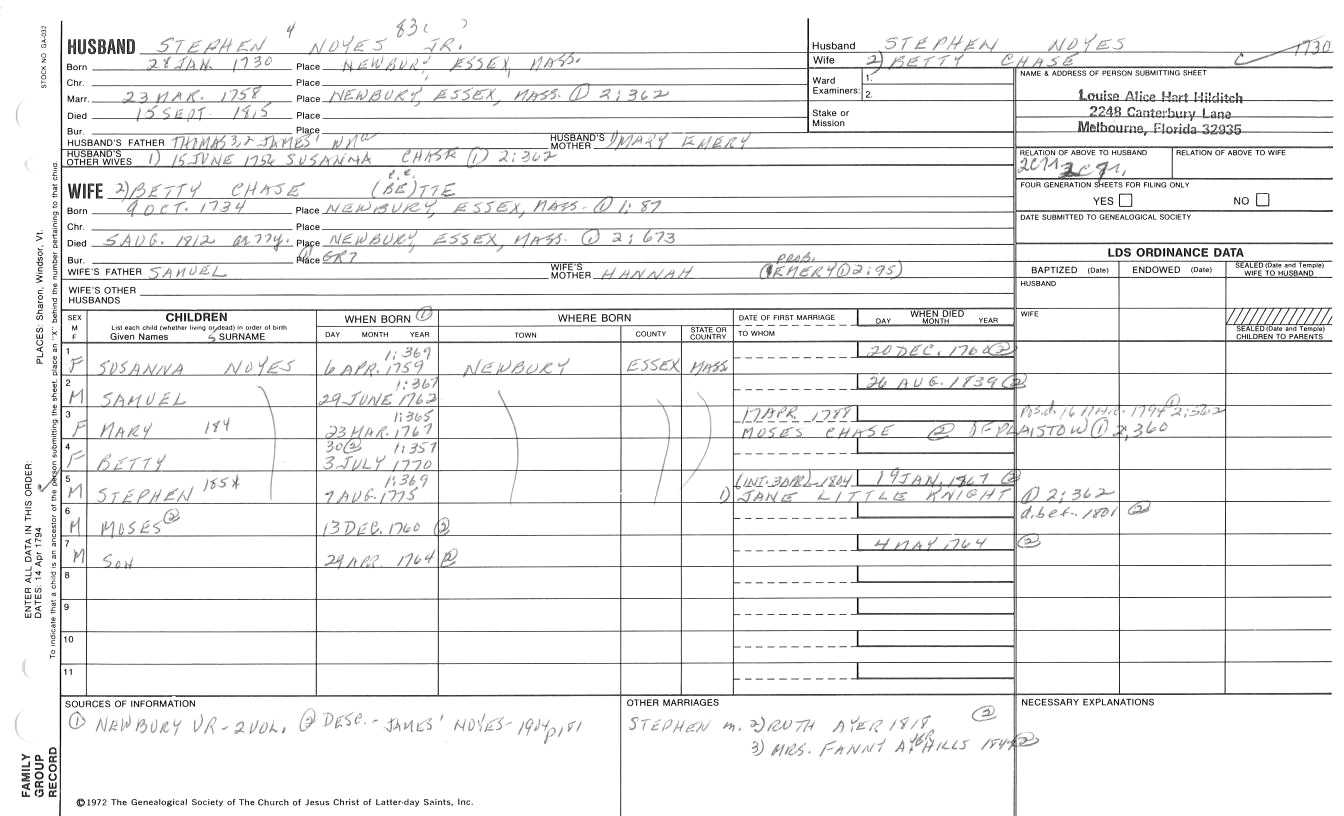 4 83( )
STOCK NO. GA-032
HUSBAND STEPHEN NOYES JR.
Born 28 JAN. 1730 Place NEWBURY, ESSEX, MASS.
Chr. Place
Marr. 23 MAR. 1758 Place NEWBURY, ESSEX, MASS. ① 2:362
Died 15 SEPT. 1815 Place
Bur. Place
HUSBAND'S FATHER THOMAS 3, 2 JAMES' HUSBAND'S MOTHER MARY EMERY
HUSBAND'S OTHER WIVES 1) 15 JUNE 1756 SUSANNA CHASE ① 2:362
Husband STEPHEN NOYES 1730
Wife 2) BETTY CHASE C
Ward Examiners: 1.
2.
Stake or Mission
NAME & ADDRESS OF PERSON SUBMITTING SHEET
Louise Alice Hart Hilditch
2248 Canterbury Lane
Melbourne, Florida 32935
RELATION OF ABOVE TO HUSBAND RELATION OF ABOVE TO WIFE
FOUR GENERATION SHEETS FOR FILING ONLY
YES NO
DATE SUBMITTED TO GENEALOGICAL SOCIETY
WIFE 2) BETTY CHASE (BE)TTE
Born 9 OCT. 1734 Place NEWBURY, ESSEX, MASS. ① 1:87
Chr. Place
Died 5 AUG. 1812 a 77y. Place NEWBURY, ESSEX, MASS. ① 2:673
Bur. Place GR7
WIFE'S FATHER SAMUEL WIFE'S MOTHER HANNAH PROB. (EMERY ① 2:95)
WIFE'S OTHER HUSBANDS
LDS ORDINANCE DATA
BAPTIZED (Date) ENDOWED (Date) SEALED (Date and Temple) WIFE TO HUSBAND
HUSBAND
WIFE
SEALED (Date and Temple) CHILDREN TO PARENTS
SEX M F CHILDREN
List each child (whether living or dead) in order of birth
Given Names SURNAME
WHEN BORN ①
DAY MONTH YEAR
WHERE BORN
TOWN COUNTY STATE OR COUNTRY
DATE OF FIRST MARRIAGE
TO WHOM
WHEN DIED
DAY MONTH YEAR
1 1:369 20 DEC. 1760 ②
F SUSANNA NOYES 6 APR. 1759 NEWBURY ESSEX MASS
2 1:367 26 AUG. 1839 ②
M SAMUEL 29 JUNE 1762
3 1:365 17 APR. 1788
F MARY 184 23 MAR. 1767 MOSES CHASE ② OF PLAISTOW ① 2,360
4 30 ② 1:357
F BETTY 3 JULY 1770
5 1:369 (INT. 3 APR) 1804 19 JAN. 1867 ②
M STEPHEN 185* 7 AUG. 1775 1) JANE LITTLE KNIGHT ① 2:362
6 d. bef. 1801 ②
M MOSES ② 13 DEC. 1760 ②
7 4 MAY 1764 ②
M SON 29 APR. 1764 ②
8
9
10
11
SOURCES OF INFORMATION
① NEWBURY VR - 2 VOL. ② DESC. - JAMES' NOYES - 1904 p181
OTHER MARRIAGES
STEPHEN m. 2) RUTH AYER 1818 ②
3) MRS. FANNY AYER HILLS ②
NECESSARY EXPLANATIONS
©1972 The Genealogical Society of The Church of Jesus Christ of Latter-day Saints, Inc.
ENTER ALL DATA IN THIS ORDER:
DATES: 14 Apr 1794
PLACES: Sharon, Windsor, Vt.
To indicate that a child is an ancestor of the person submitting the sheet, place an "X" behind the number pertaining to that child.
FAMILY GROUP RECORD